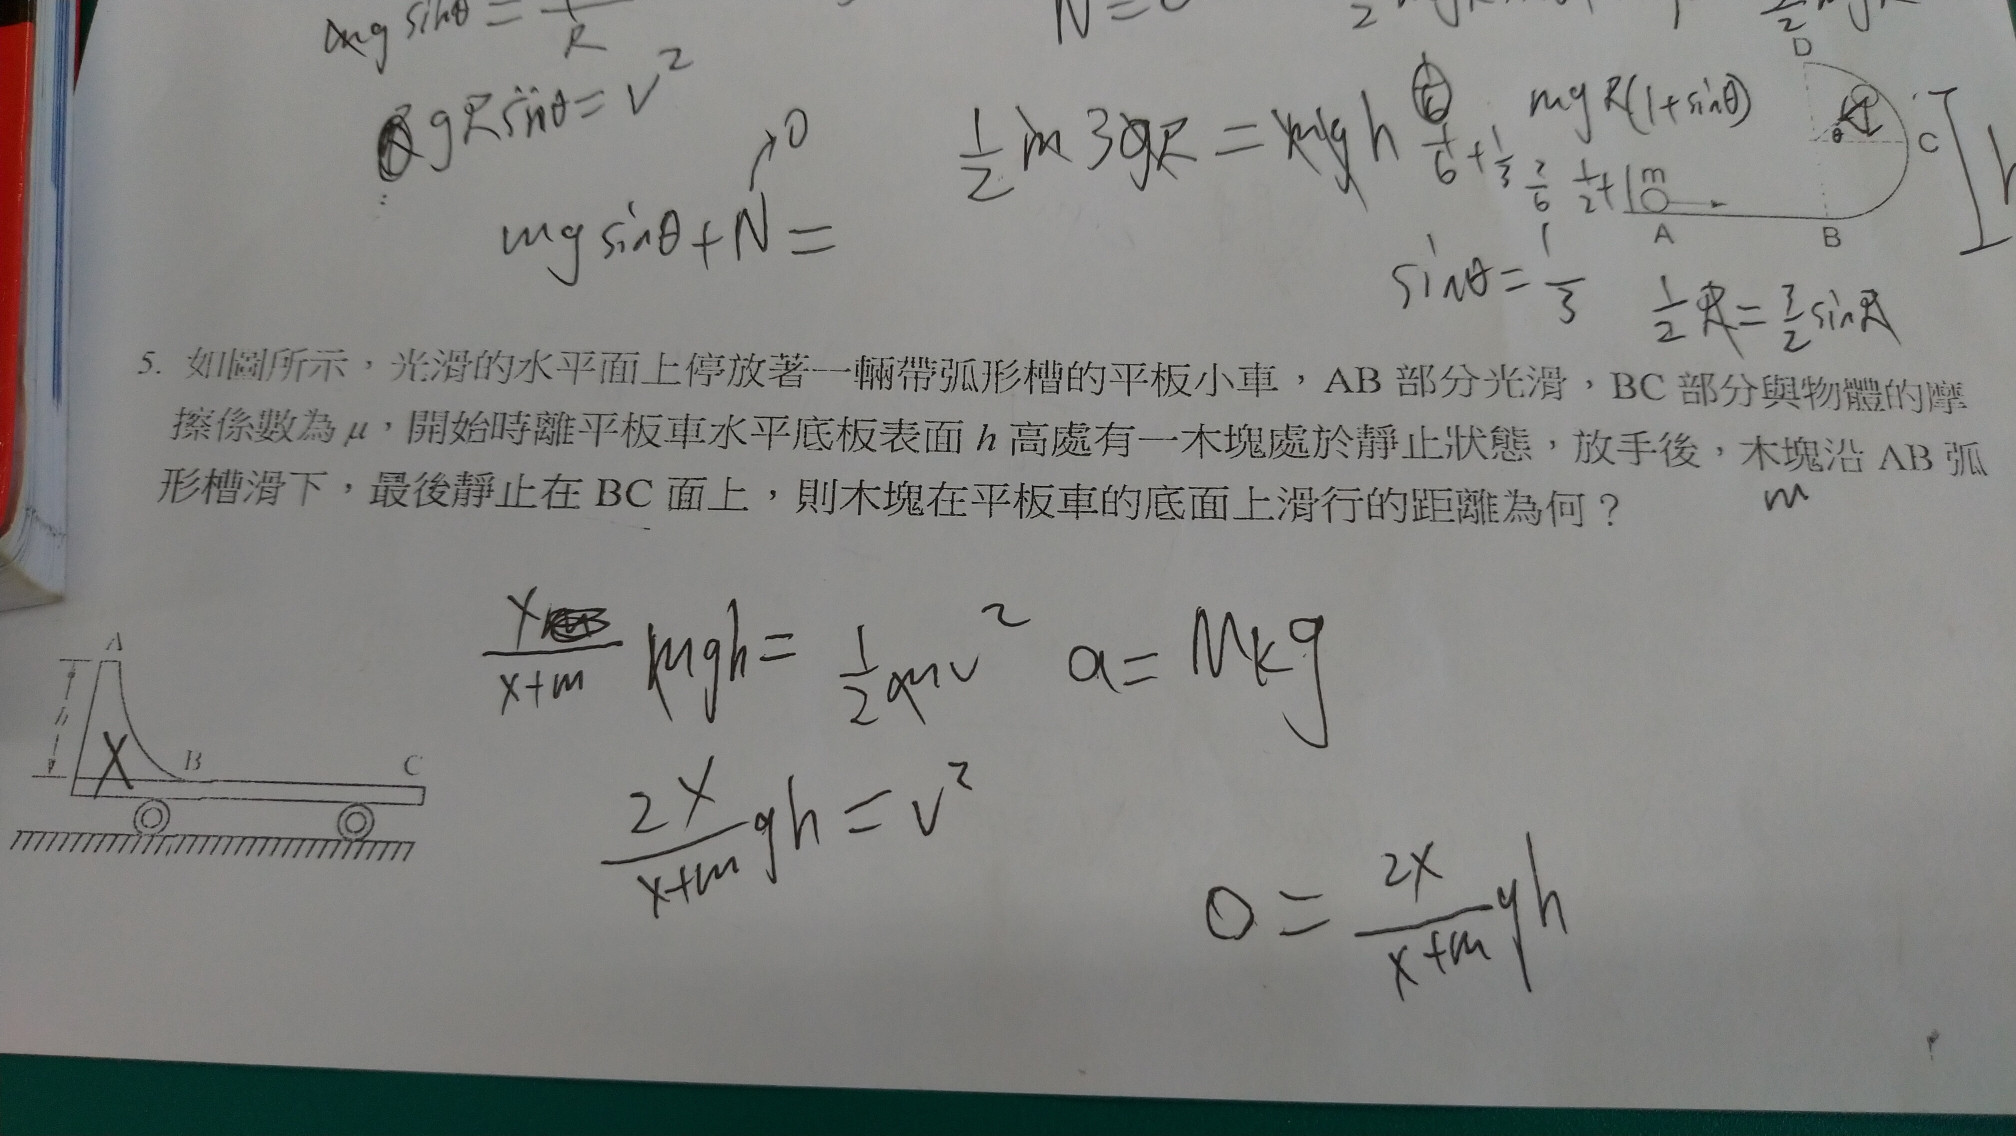 mg sinθ =
R
N=0
D
gR sinθ = v²
0
½ m 3gR = mgh
mgR(1+sinθ)
1/6 + 1/3
2/6
1/2 + 1
m
θ
C
h
A
B
mg sinθ + N =
sinθ = 1/3
1/2 R = 3/2 sin R
5. 如圖所示，光滑的水平面上停放著一輛帶弧形槽的平板小車，AB 部分光滑，BC 部分與物體的摩
擦係數為 μ，開始時離平板車水平底板表面 h 高處有一木塊處於靜止狀態，放手後，木塊沿 AB 弧
形槽滑下，最後靜止在 BC 面上，則木塊在平板車的底面上滑行的距離為何？
m
X/(x+m) mgh = ½ mv² a = Mkg
A
h
X
B
C
2X/(x+m) gh = v²
0 = 2X/(x+m) gh